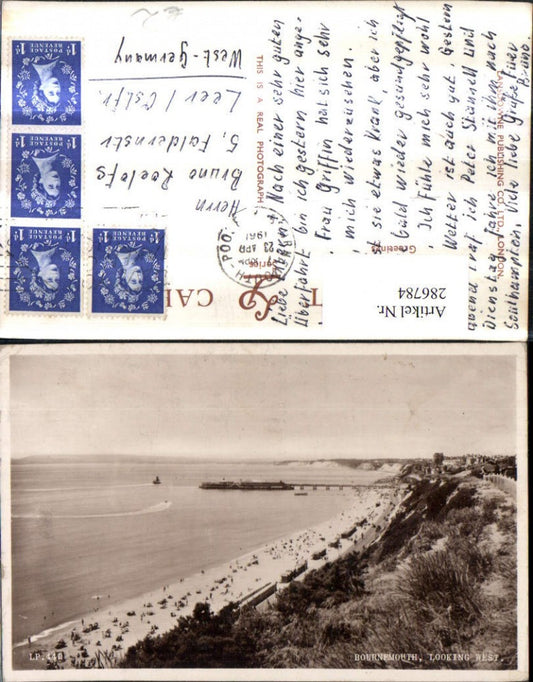 Liebe Eltern! Nach einer sehr guten
Überfahrt bin ich gestern hier ange-
Frau Griffin hat sich sehr
mich wiederzusehen
ist sie etwas krank, aber ich
bald wieder gesund gepflegt
Ich fühle mich sehr wohl
Wetter ist auch gut. Gestern
abend traf ich Peter Strensch und
Dienstag fahre ich mit ihm nach
Southampton. Viele liebe Grüße Euer
Bruno.
THIS IS A REAL PHOTOGRAPH
PUBLISHING CO. LTD., LONDON.
Greetings
Series
CA
Herrn
Bruno Roelofs
5, Faldernstr
Leer / Ostfr.
West-Germany
23 APR
1961
POSTAGE
REVENUE
1D
POSTAGE
REVENUE
1D
POSTAGE
REVENUE
1D
POSTAGE
REVENUE
1D
Artikel Nr.
286784
LP.440
BOURNEMOUTH, LOOKING WEST.